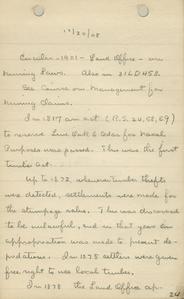 11/20/08
Circular - 1901 - Land Office - on
Mining Laws. Also in 31 L D 458.
See Cameron Management for
Mining Claims.
In 1817 an act (R.S. 24, 58, 69)
to reserve Live Oak & Cedar for Naval
Purposes was passed. This was the first
timber act.
Up to 1872, whenever timber thefts
were detected, settlements were made for
the stumpage value. This was discovered
to be unlawful, and in that year an
appropriation was made to prevent de-
predations. In 1875 settlers were given
free right to use local timber.
In 1878 the Land Office ap-